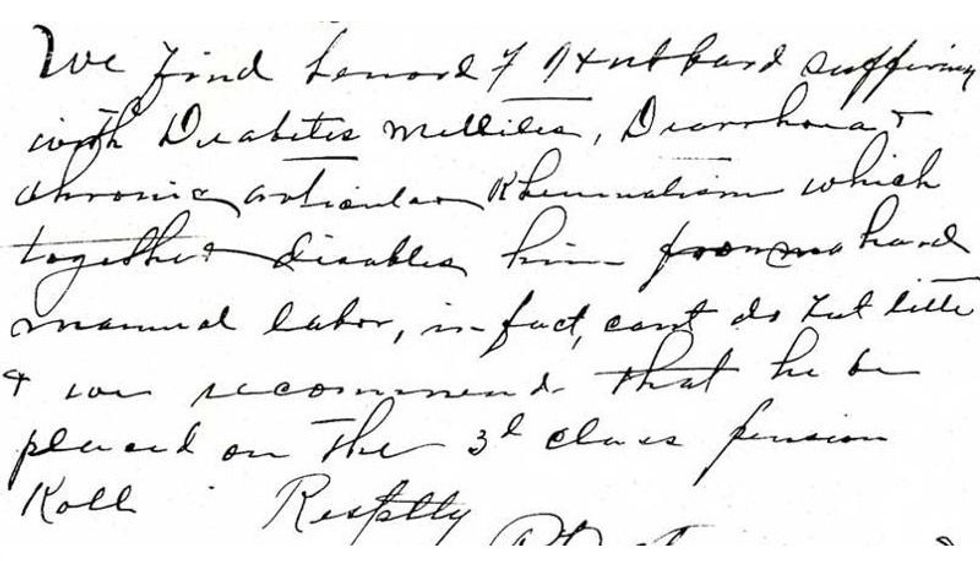 We find Lenord F Hubbard suffering
with Diabetes Mellites, Diarrhoea &
chronic articular Rheumatism which
together disables him from hard
manual labor, in fact, cant do but little
& we recommend that he be
placed on the 3d class pension
Roll Respftlly